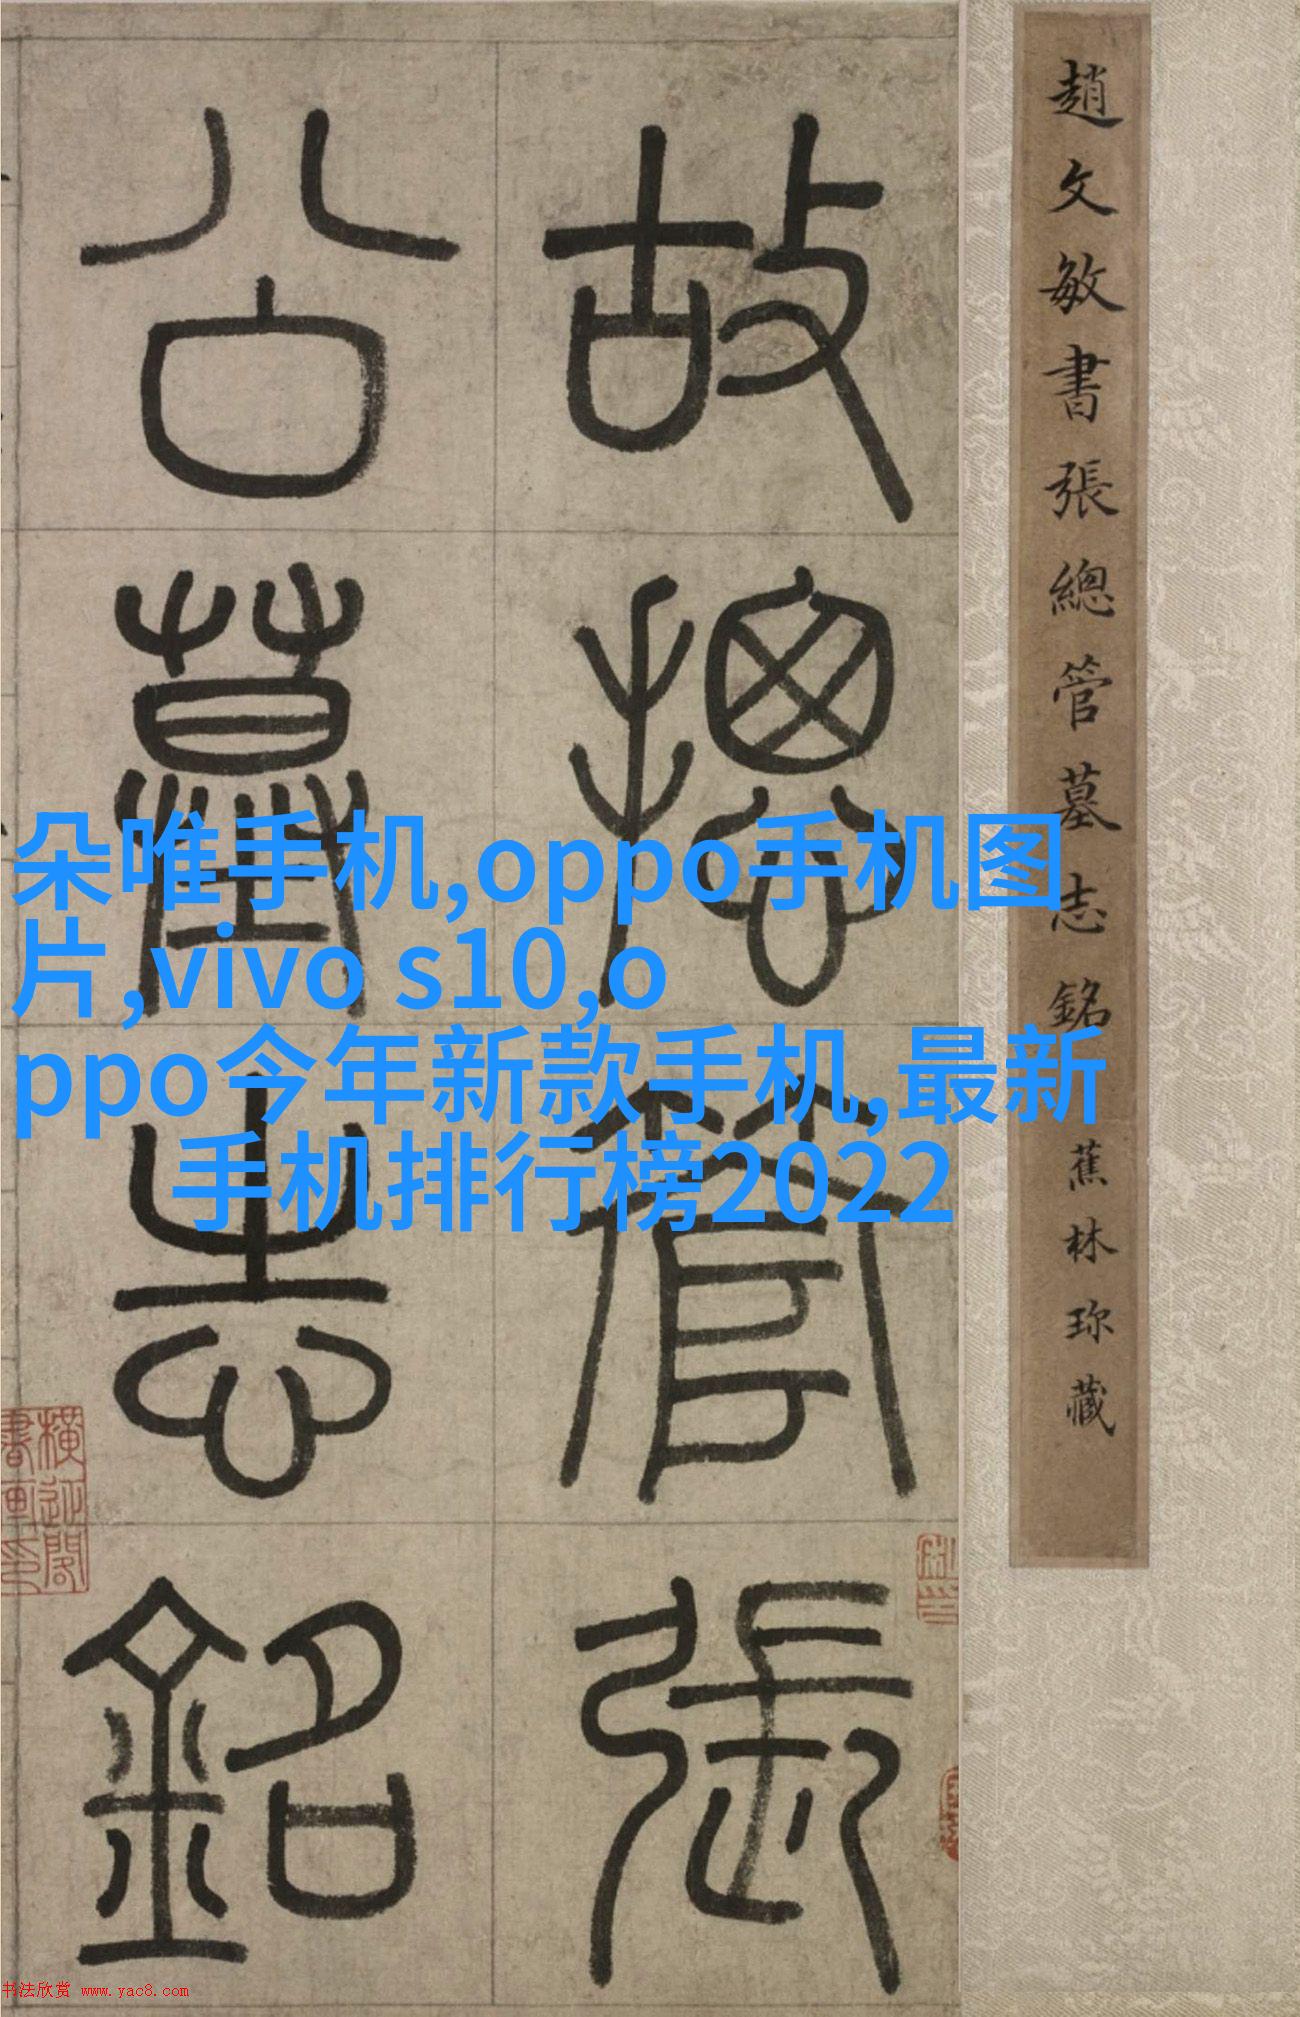 趙文敏書張總管墓志銘
蕉林珍藏
故總管張
公墓志銘
朵唯手机,oppo手机图
片,vivo s10,o
ppo今年新款手机,最新
手机排行榜2022
书法欣赏 www.yac8.com